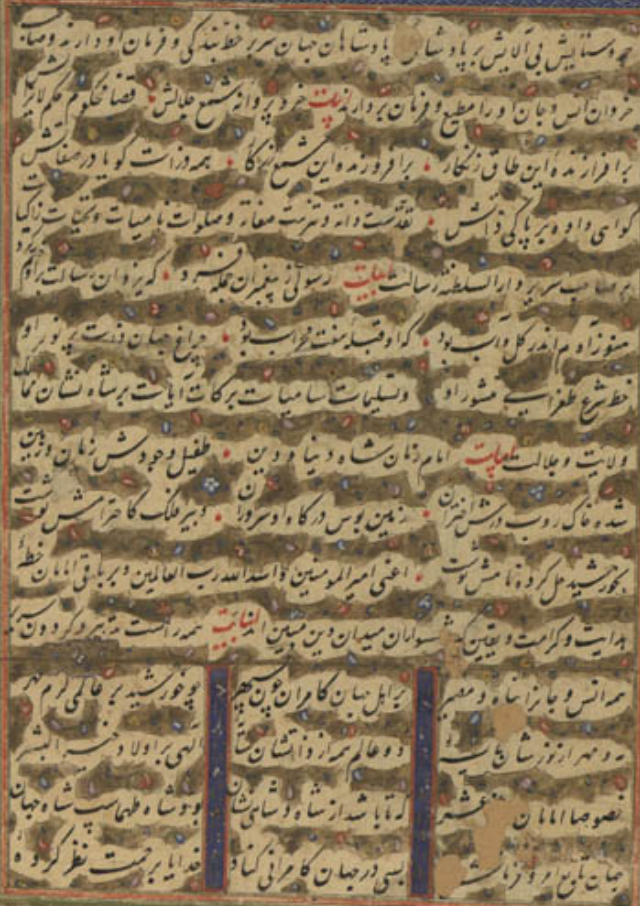 حمد و ستایش بی آلایش بر پادشاهی پادشاهان جهان سر بر خط بندگی و فرمان او دارند و صاحب
خروان انس و جان او را مطیع و فرمان بردارند بیت خرد پروانه شمع جلالش قضا محکوم حکم
برافرازنده این طاق زنگار برافروزنده این شمع همه ذرات کویا در صفاتش
کواهی داده بر پاکی ذاتش تقدست ذاته و تنزهت صفاته و صلوات نامیات و تحیات زاکیات
بر صاحب سریر دار السلطنه رسالت ابیات رسولی از پیغمبران جمله فرد که یزدان رسالت برو ختم کرد
هنوز آدم اندر کل و آب بود که او قبله هفت محراب بود چراغ جهان ذات پر نور او
خط شرع طغرای منشور او و تسلیمات سامیات برکات آیات بر شاه نشان ممالک
ولایت و جلالت بیت امام زمان شاه دنیا و دین طفیل وجودش زمان و زمین
شده خاک روب درش اختران زمین بوس درکاه او سروران دبیر فلک کاحترامش نوشت
بخورشید حل کرده نامش نوشت اعنی امیر المومنین و اسد الله رب العالمین و بر باقی امامان خطه
هدایت و کرامت و یقین که شهسواران میدان دین مبین اند لبیت همه راست تدبیر و کردون سریر
همه انس و جان را شاه و مهر بر اهل جهان کامران چون سپهر چو خورشید بر عالمی کرم مهر
مه و مهر از نور شان دو عالم همه از ذاتشان الهی بر اولاد خیر البشر
خصوصا امامان که تا باشد از شاه و شاهی نشان بود شاه طهماسب شاه جهان
جهان تابع امر و فرمانش بسی در جهان کامرانی کناد خدایا برحمت نظر کرده